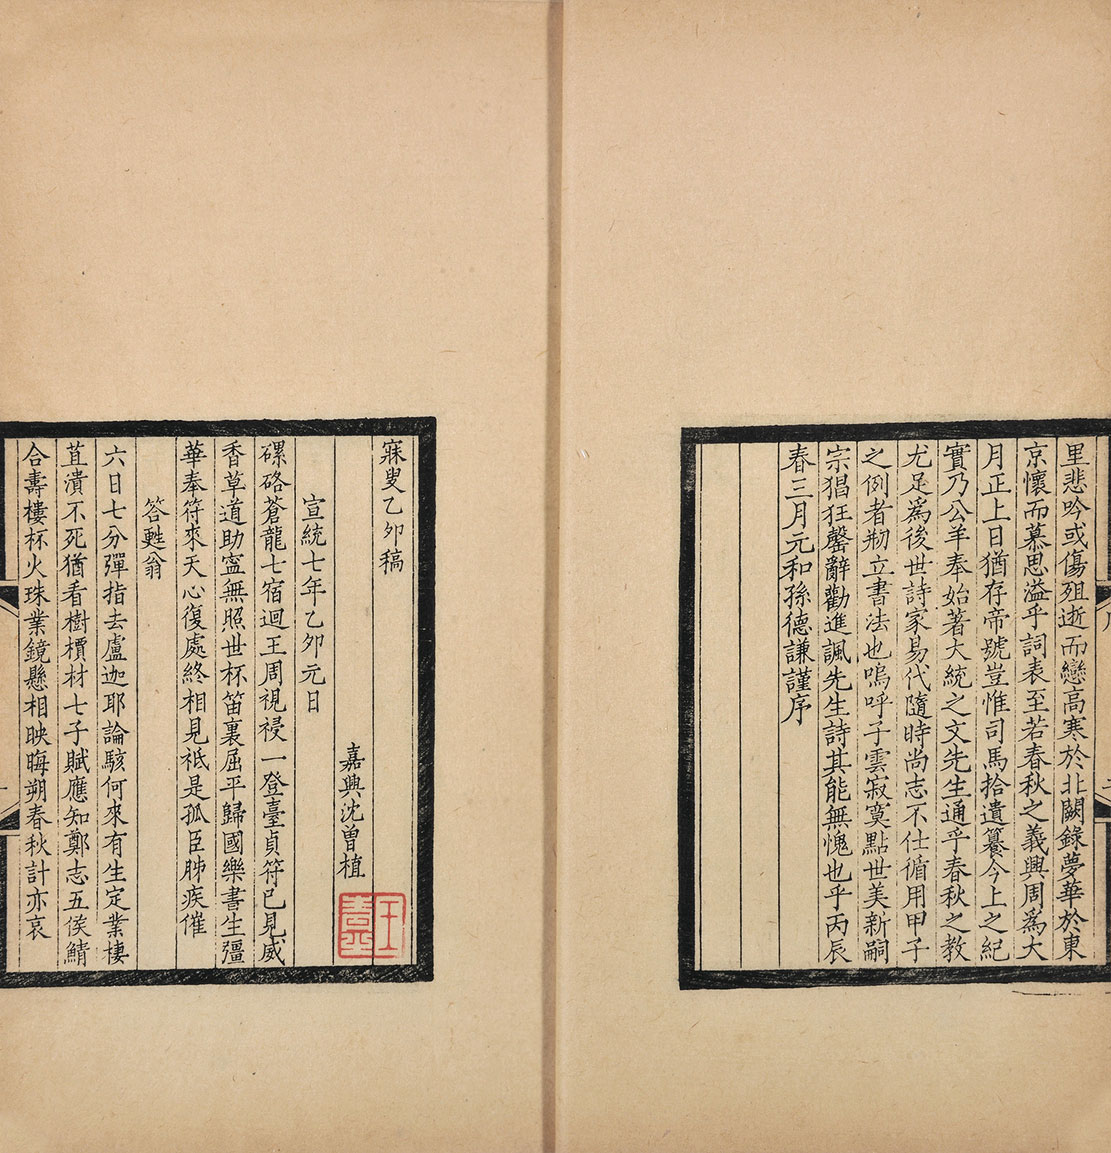 里悲吟或傷殂逝而戀高寒於北闕錄夢華於東
京懷而慕思溢乎詞表至若春秋之義興周爲大
月正上日猶存帝號豈惟司馬拾遺纂今上之紀
實乃公羊奉始著大統之文先生通乎春秋之教
尤足爲後世詩家易代隨時尚志不仕循用甲子
之例者剏立書法也嗚呼子雲寂寞點世美新嗣
宗猖狂罄辭勸進諷先生詩其能無愧也乎丙辰
春三月元和孫德謙謹序
寐叟乙卯稿
嘉興沈曾植
宣統七年乙卯元日
磥硌蒼龍七宿迴王周視祲一登臺貞符已見威
香草道助寍無照世杯笛裏屈平歸國樂書生彊
華奉符來天心復處終相見祗是孤臣肺疾催
答甦翁
六日七分彈指去盧迦耶論駭何來有生定業棲
苴潰不死猶看樹櫝材七子賦應知鄭志五侯鯖
合壽樓杯火珠業鏡懸相映晦朔春秋計亦哀